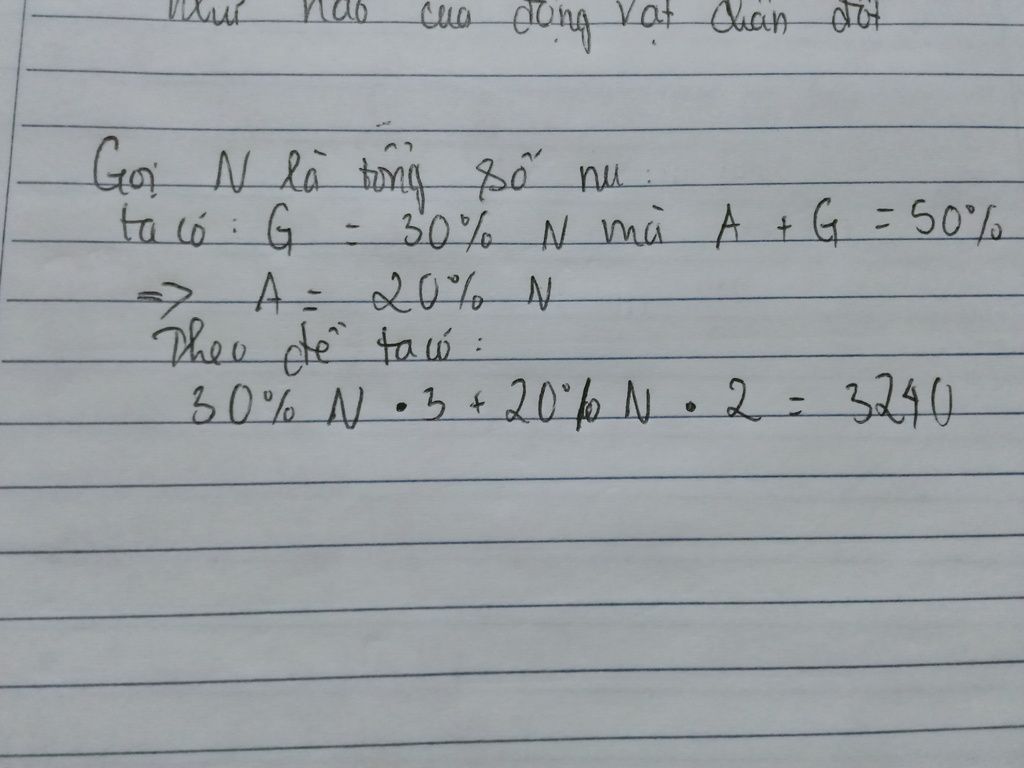 như nào của động vật chân đốt
Gọi N là tổng số nu:
ta có: G = 30% N mà A + G = 50%
=> A = 20% N
Theo đề ta có:
30% N . 3 + 20% N . 2 = 3240